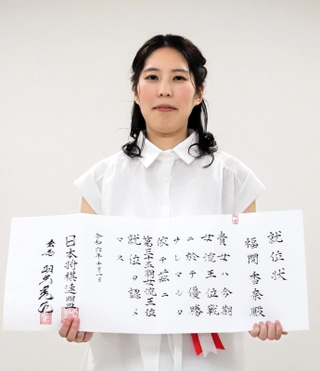 就位状
福間香奈殿
貴女ハ今期
女流王位戦
ニ於テ優勝
サレマシタ
依テ茲ニ
第三十五期女流王位
就位ヲ認メ
マス
日本将棋連盟
会長